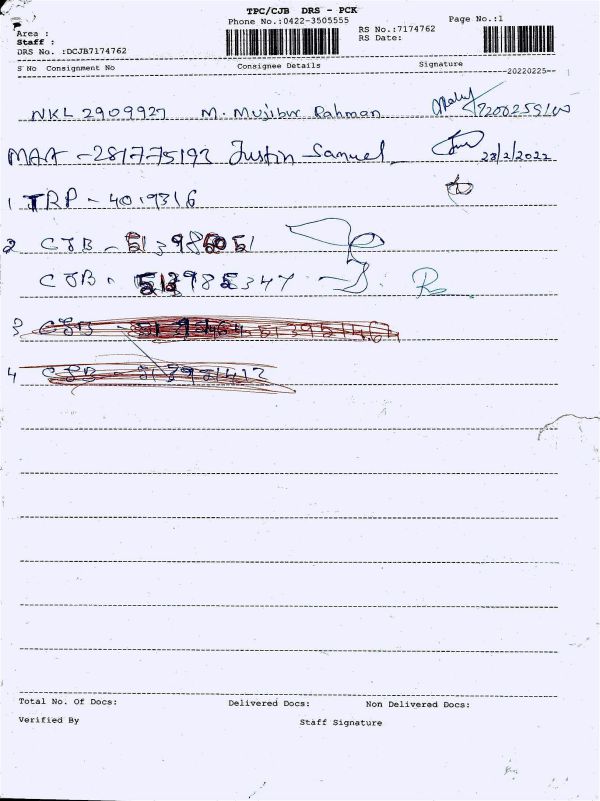 TPC/CJB DRS - PCK
Phone No.:0422-3505555 Page No.:1
Area : RS No.:7174762
Staff : RS Date:
DRS No. :DCJB7174762
S No Consignment No Consignee Details Signature
20220225
NKL 2909927 M. Mujibur Rahman
MAA - 281775193 Justin Samuel 23/2/2022
1 TRP - 4019316
2 CJB -
CJB
3 CJB - 513951464
4 CJB - 513951412
Total No. Of Docs: Delivered Docs: Non Delivered Docs:
Verified By Staff Signature